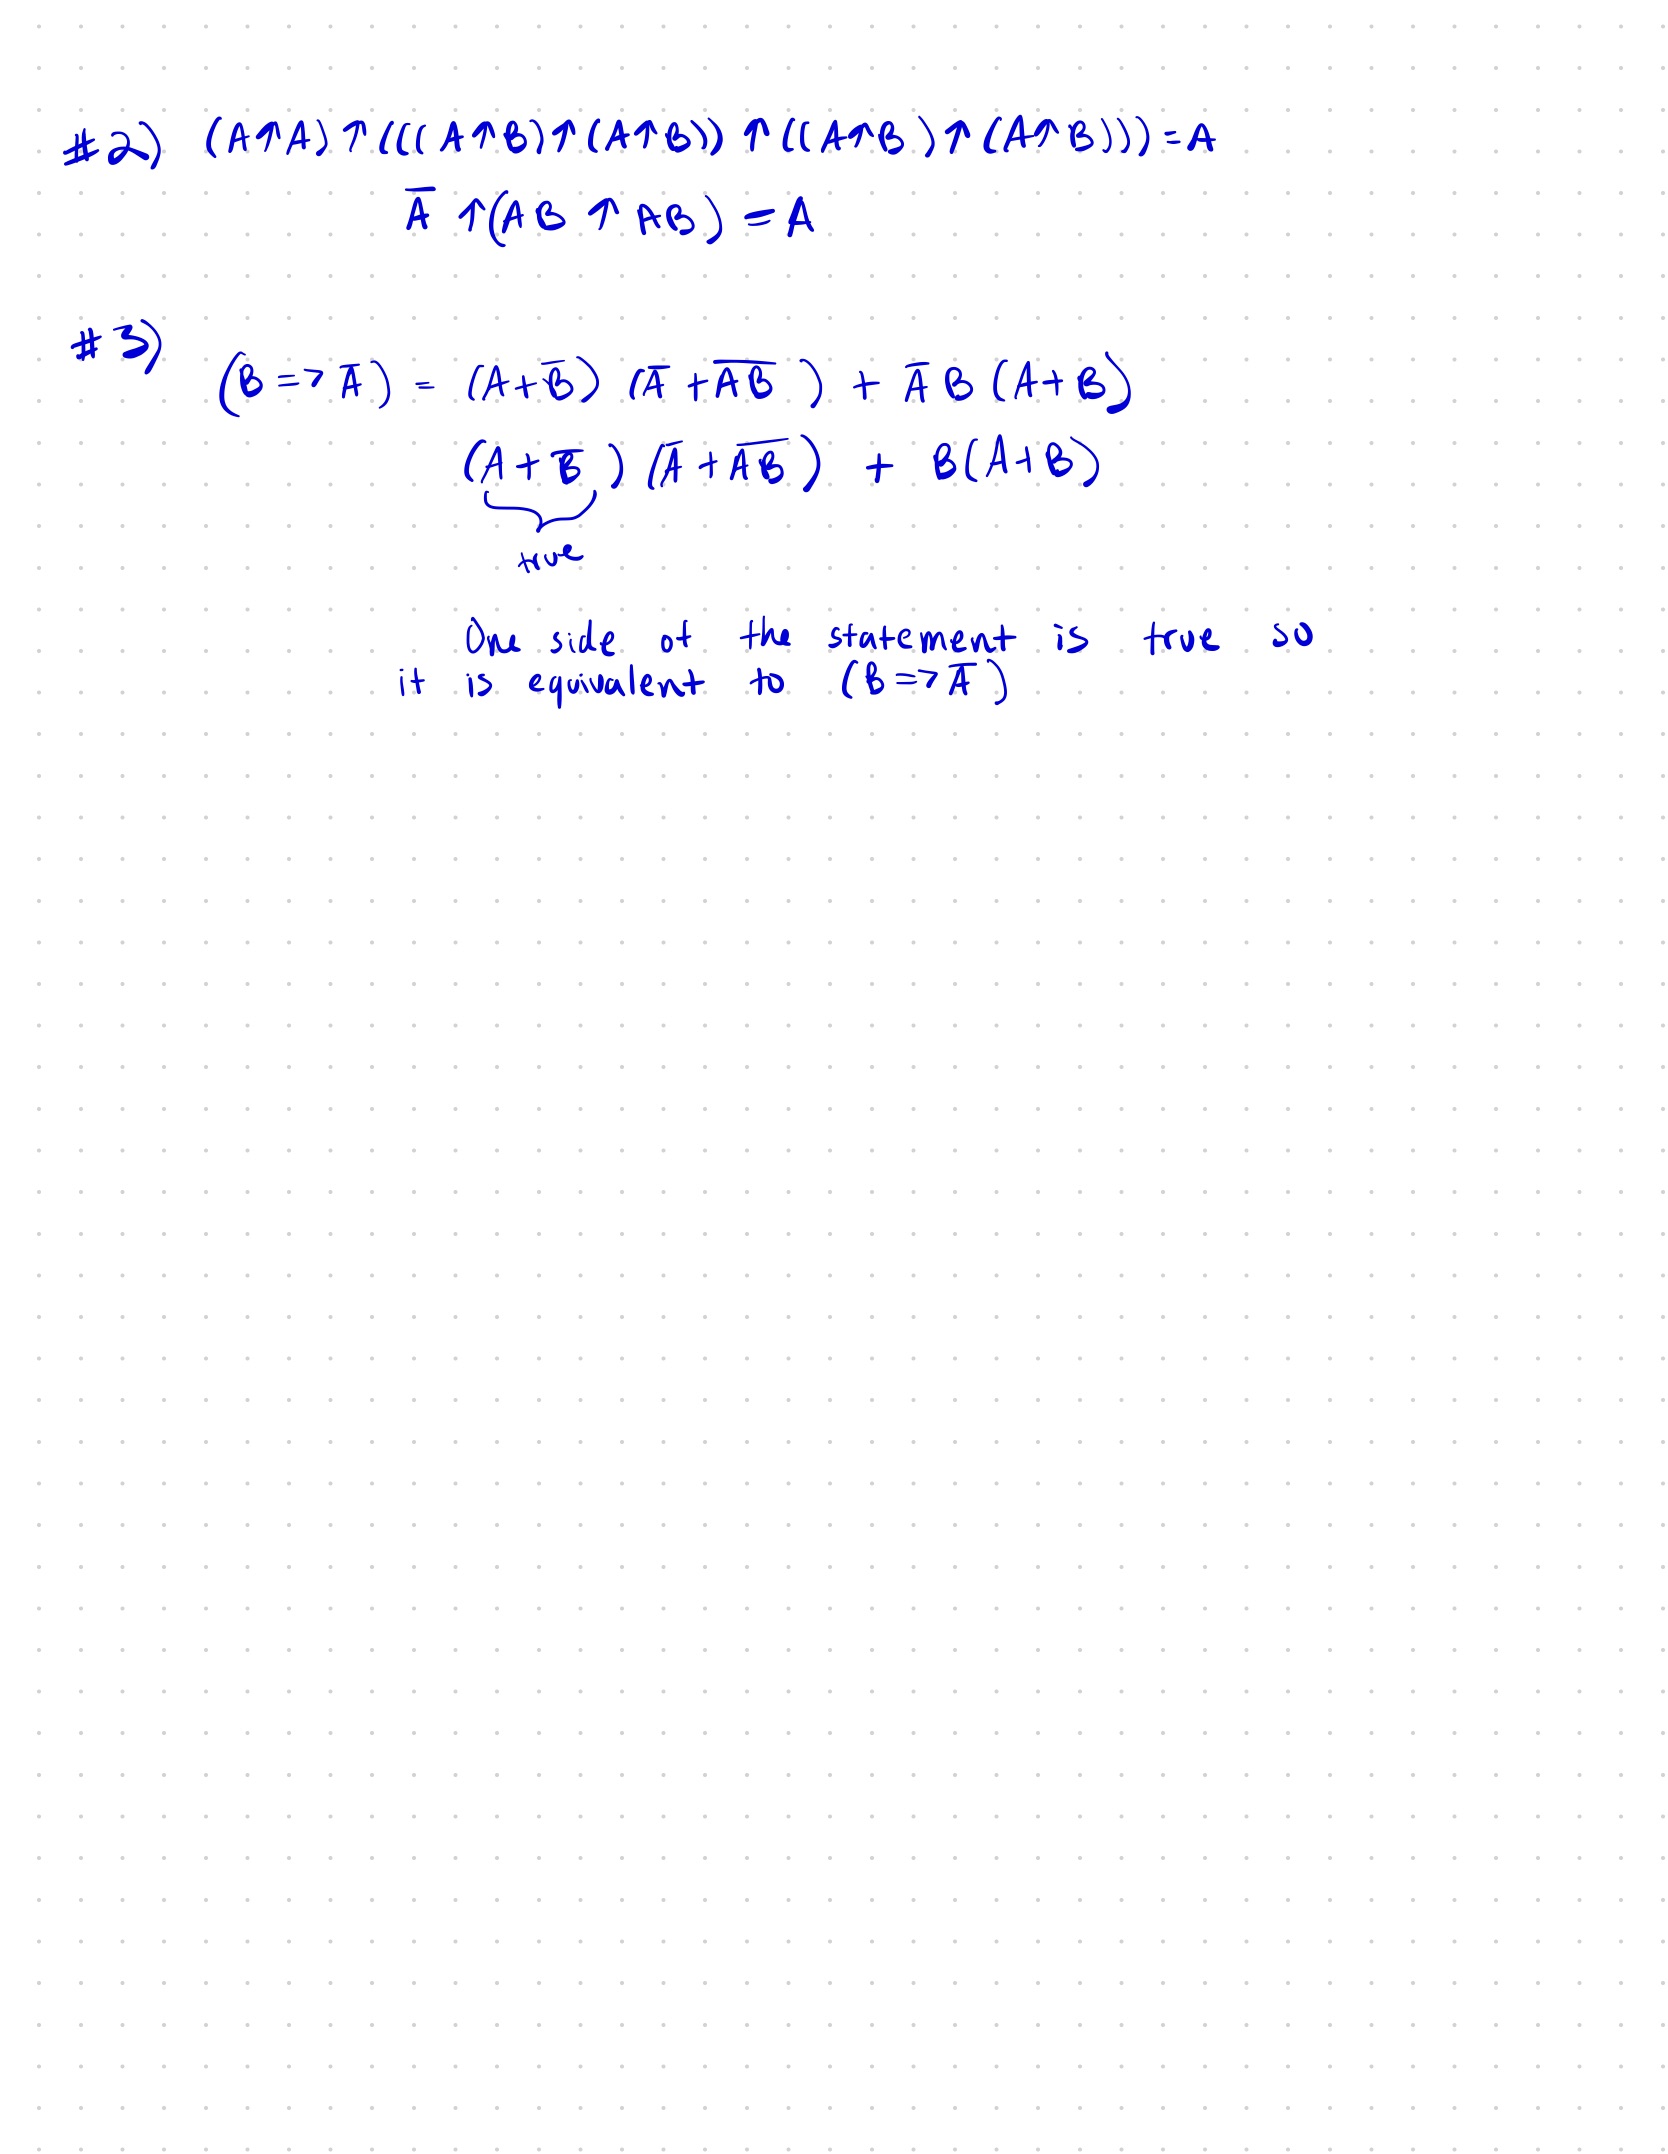 #2) (A↑A)↑(((A↑B)↑(A↑B))↑((A↑B)↑(A↑B)))=A
A̅ ↑(AB ↑ AB) = A
#3)
(B => A̅) = (A+B̅) (A̅ + A̅B̅) + A̅ B (A+B)
(A + B̅) (A̅ + A̅B̅) + B(A+B)
true
One side of the statement is true so
it is equivalent to (B => A̅)